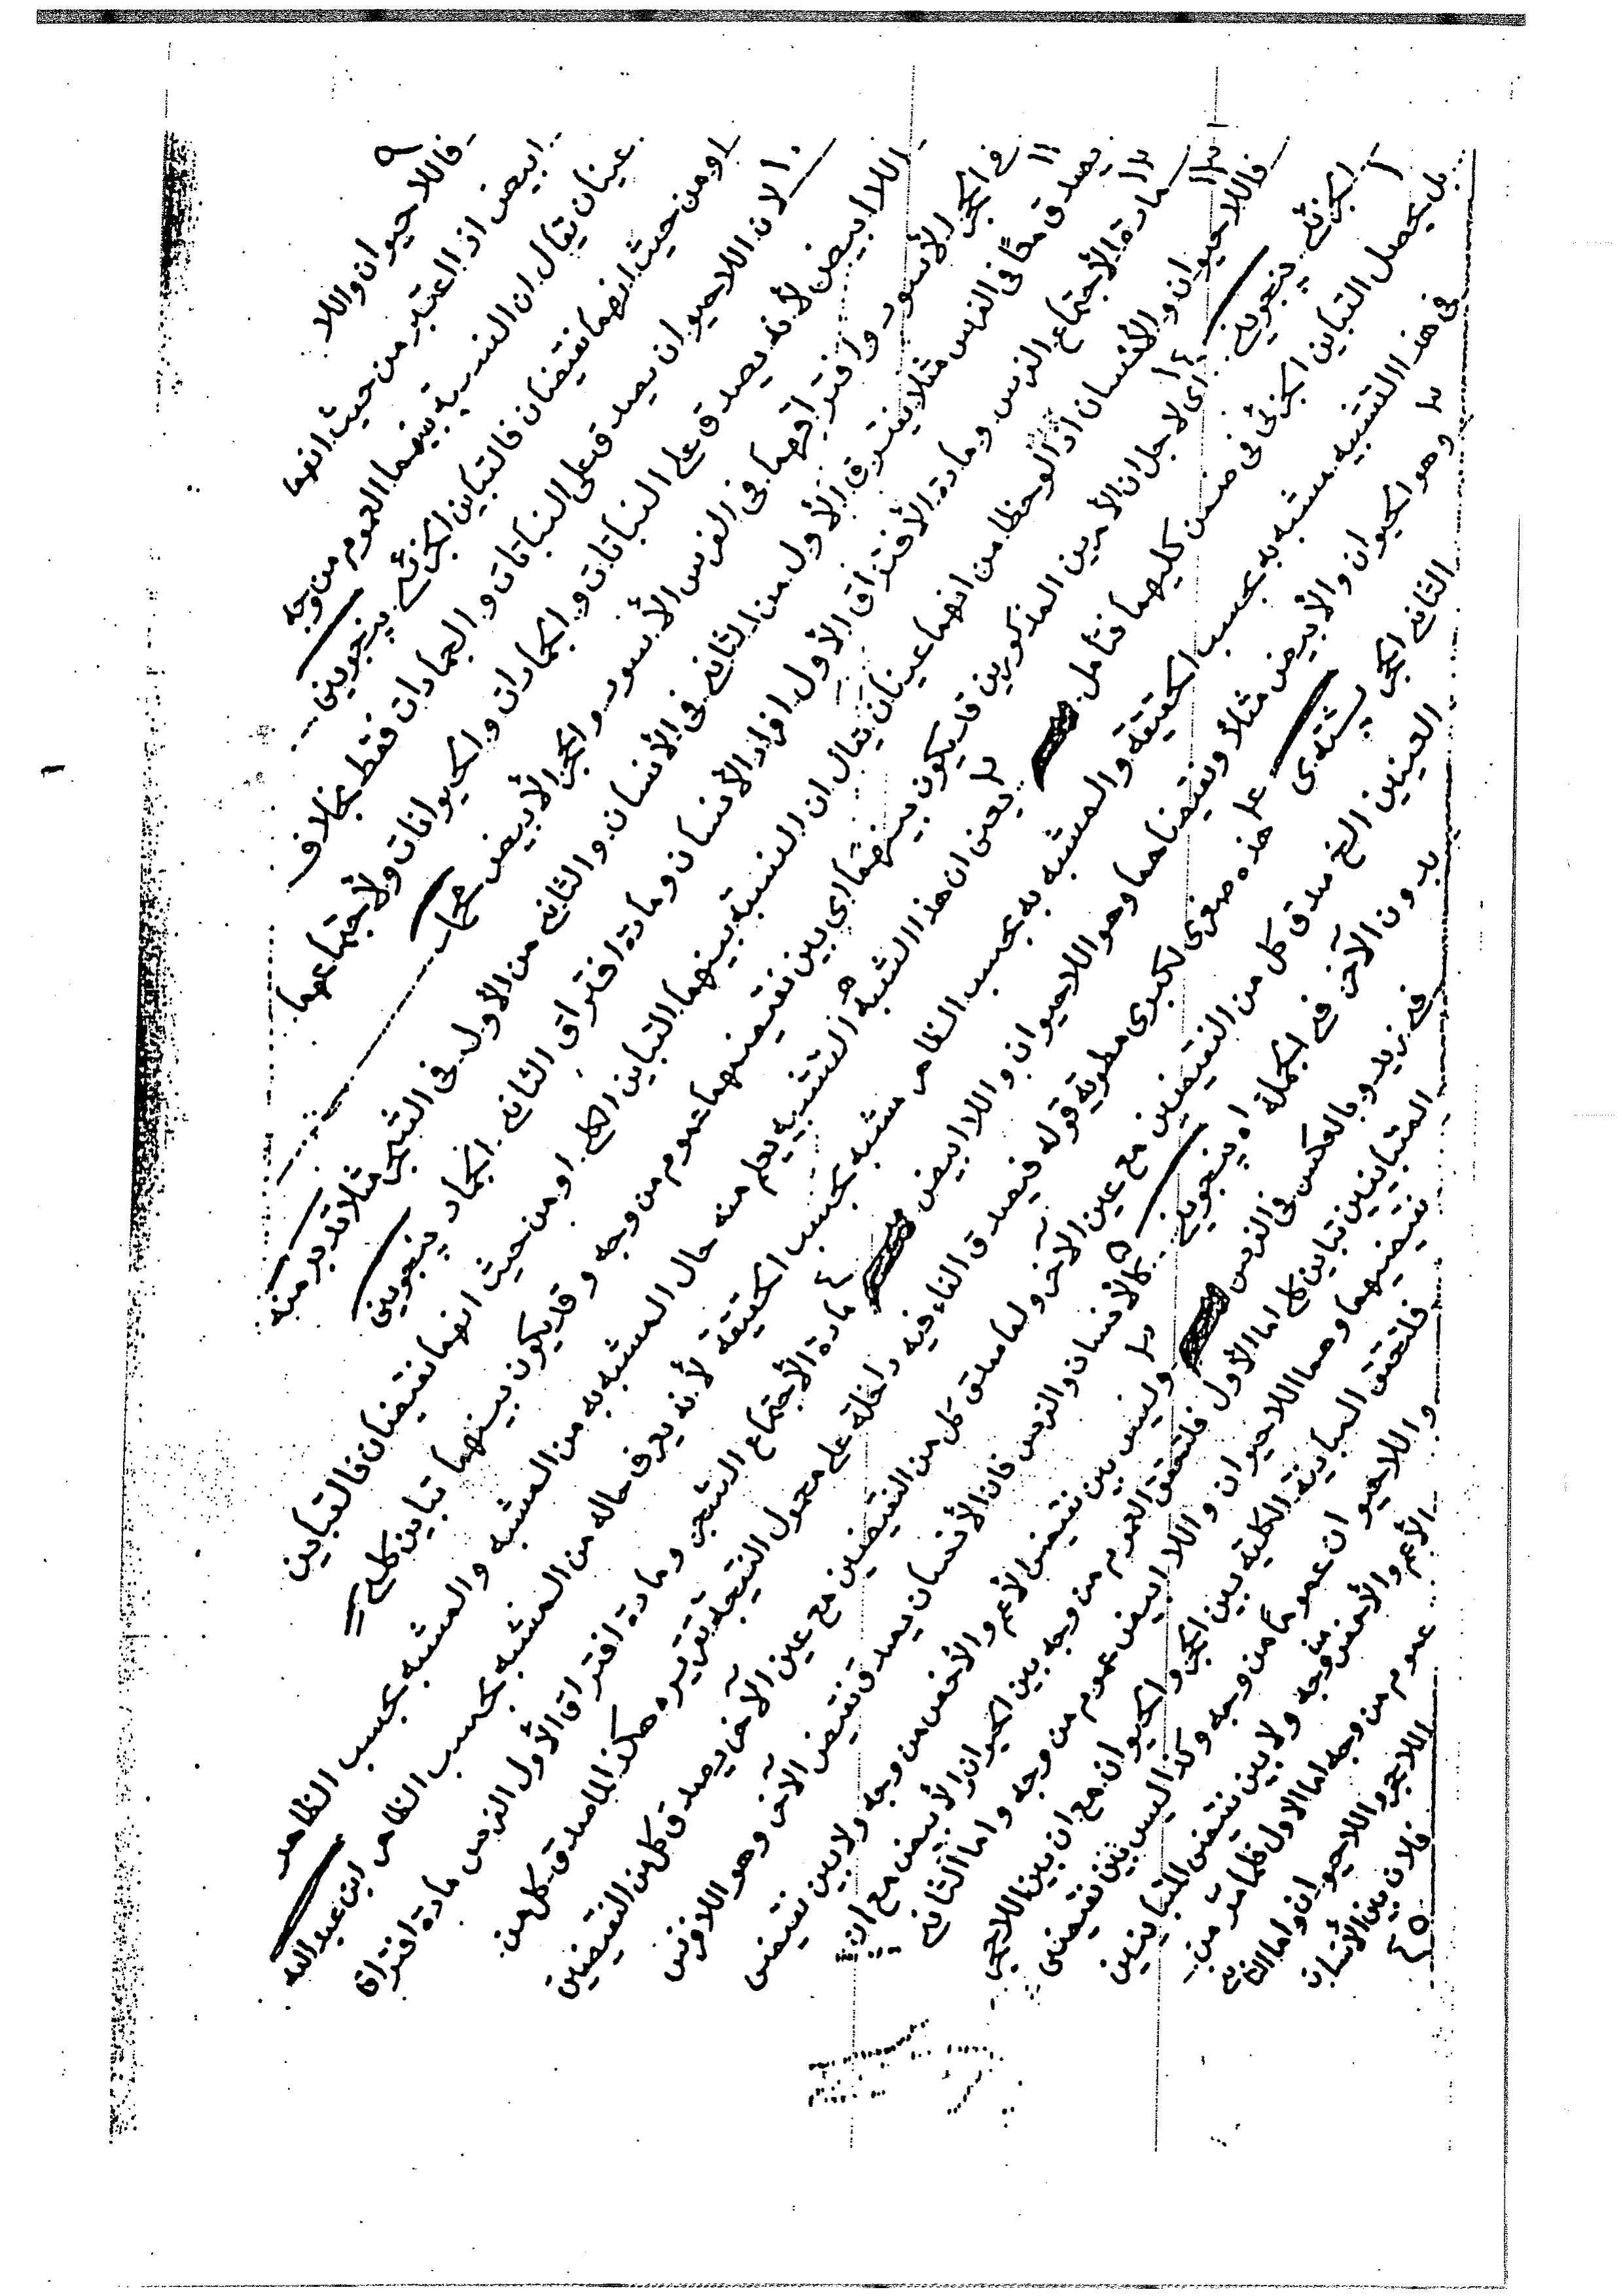 ٩ فاللاحيوان واللا
ابيض اذا اعتبر من حيث انهما
عينان يقال ان النسبة بينهما العموم من وجه
او من حيث انهما نقيضان فالتباين الجزئي پنجوينى
١٠ لان اللاحيوان يصدق على النباتات والجمادات فقط بخلاف
اللاابيض لأنه يصدق على النباتات والجمادات والحيوانات ولأجتماعهما
في الحجر الأسود وافتراقهما فى الفرس الأسود والحجر الأبيض
١١ يصدق معًا فى الفرس مثلا يفترق الأول من الثاني فى الأنسان والثاني من الأول فى الشجر مثلا تدبر منه
١٢ مادة الأجتماع الفرس ومادة الأفتراق الأول افراد الأنسان ومادة افتراق الثاني الجماد پنجوينى
١٣ فاللاحيوان والأنسان اذا لوحظا من انهما عينان يقال ان النسبة بينهما التباين الكلي او من حيث انهما نقيضان فالتباين
الجزئي پنجويني ١٤ اى لا جل ان الأمرين المذكورين قد يكون بينهما اى بين نقيضيهما عموم من وجه وقد يكون بينهما تباين كلي
بل يحصل التباين الجزئى فى ضمن كليهما فتأمل ٢ يعنى ان هذا الشبه التشبيه يعلم منه حال المشبه به من المشبه والمشبه بحسب الظاهر
فى هذا التشبيه مشبه به بحسب الحقيقة والمشبه به بحسب الظاهر مشبه بحسب الحقيقة لأنه يعرف حاله من المشبه بحسب الظاهر ابن عبدالله
٣ وهو الحيوان والأبيض مثلا ونقيضاهما وهو اللاحيوان واللاابيض ٤ مادة الأجتماع الشجر ومادة افتراق الأول الفرس مادة افتراق
الثاني الحجر هذه صغرى لكبرى مطوية قوله فيصدق الفاء فيه داخلة على محمول النتيجة تقريره هكذا لما صدق كل من
العينين الخ صدق كل من النقيضين مع عين الآخر ولما صدق كل من النقيضين مع عين الآخر يصدق كل من النقيضين
بدون الآخر في الجملة اه پنجويني ٥ كالأنسان والفرس فان الأنسان يصدق نقيض الآخر وهو اللافرس
في زيد وبالعكس فى الفرس وليس بين نقيضى الأعم والأخص من وجه ولا بين نقيضى
المتباينين تباين كلي اما الأول فلتحقق العموم من وجه بين الحيوان والأبيض مع ان بين
نقيضيهما وهما اللاحيوان واللاابيض عموم من وجه واما الثاني
فلتحقق المباينة الكلية بين الحجر والحيوان مع ان بين اللاحجر
واللاحيوان عموما من وجه وكذا ليس بين نقيضى
الأعم والأخص من وجه ولا بين نقيضى المتباينين
عموم من وجه اما الاول فلما مر من
اللاحجر واللاحيوان واما الثاني
فلان بين الأنسان